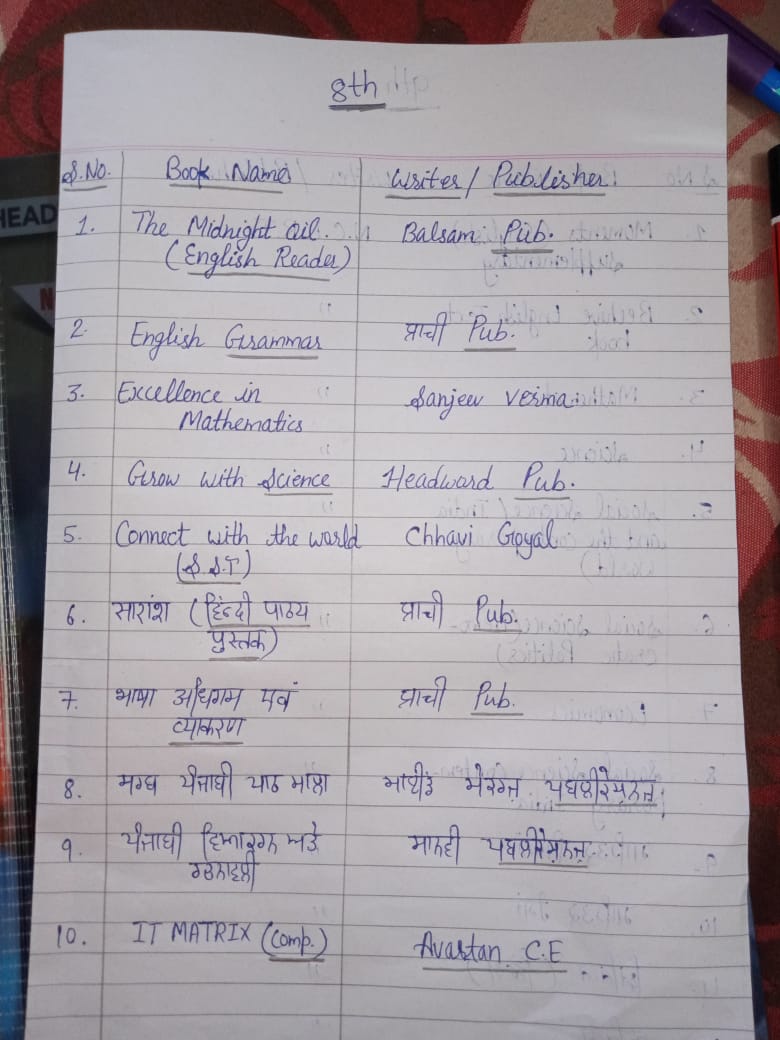 8th
S.No. Book Names Writer / Publisher.
1. The Midnight oil. Balsam Pub.
(English Reader)
2. English Grammar प्राची Pub.
3. Excellence in Sanjeev Verma
Mathematics
4. Grow with Science Headword Pub.
5. Connect with the world Chhavi Goyal
(S.S.T)
6. सारांश (हिन्दी पाठ्य प्राची Pub.
पुस्तक)
7. भाषा अधिगम एवं प्राची Pub.
व्याकरण
8. ਪੰਜਾਬੀ ਪਾਠ ਮਾਲਾ ਪਬਲੀਕੇਸ਼ਨਜ਼
9. ਪੰਜਾਬੀ ਵਿਆਕਰਨ ਅਤੇ ਮਾਨਵੀ ਪਬਲੀਕੇਸ਼ਨਜ਼
ਰਚਨਾਵਲੀ
10. IT MATRIX (Comp.) Avartan C.E
HEAD